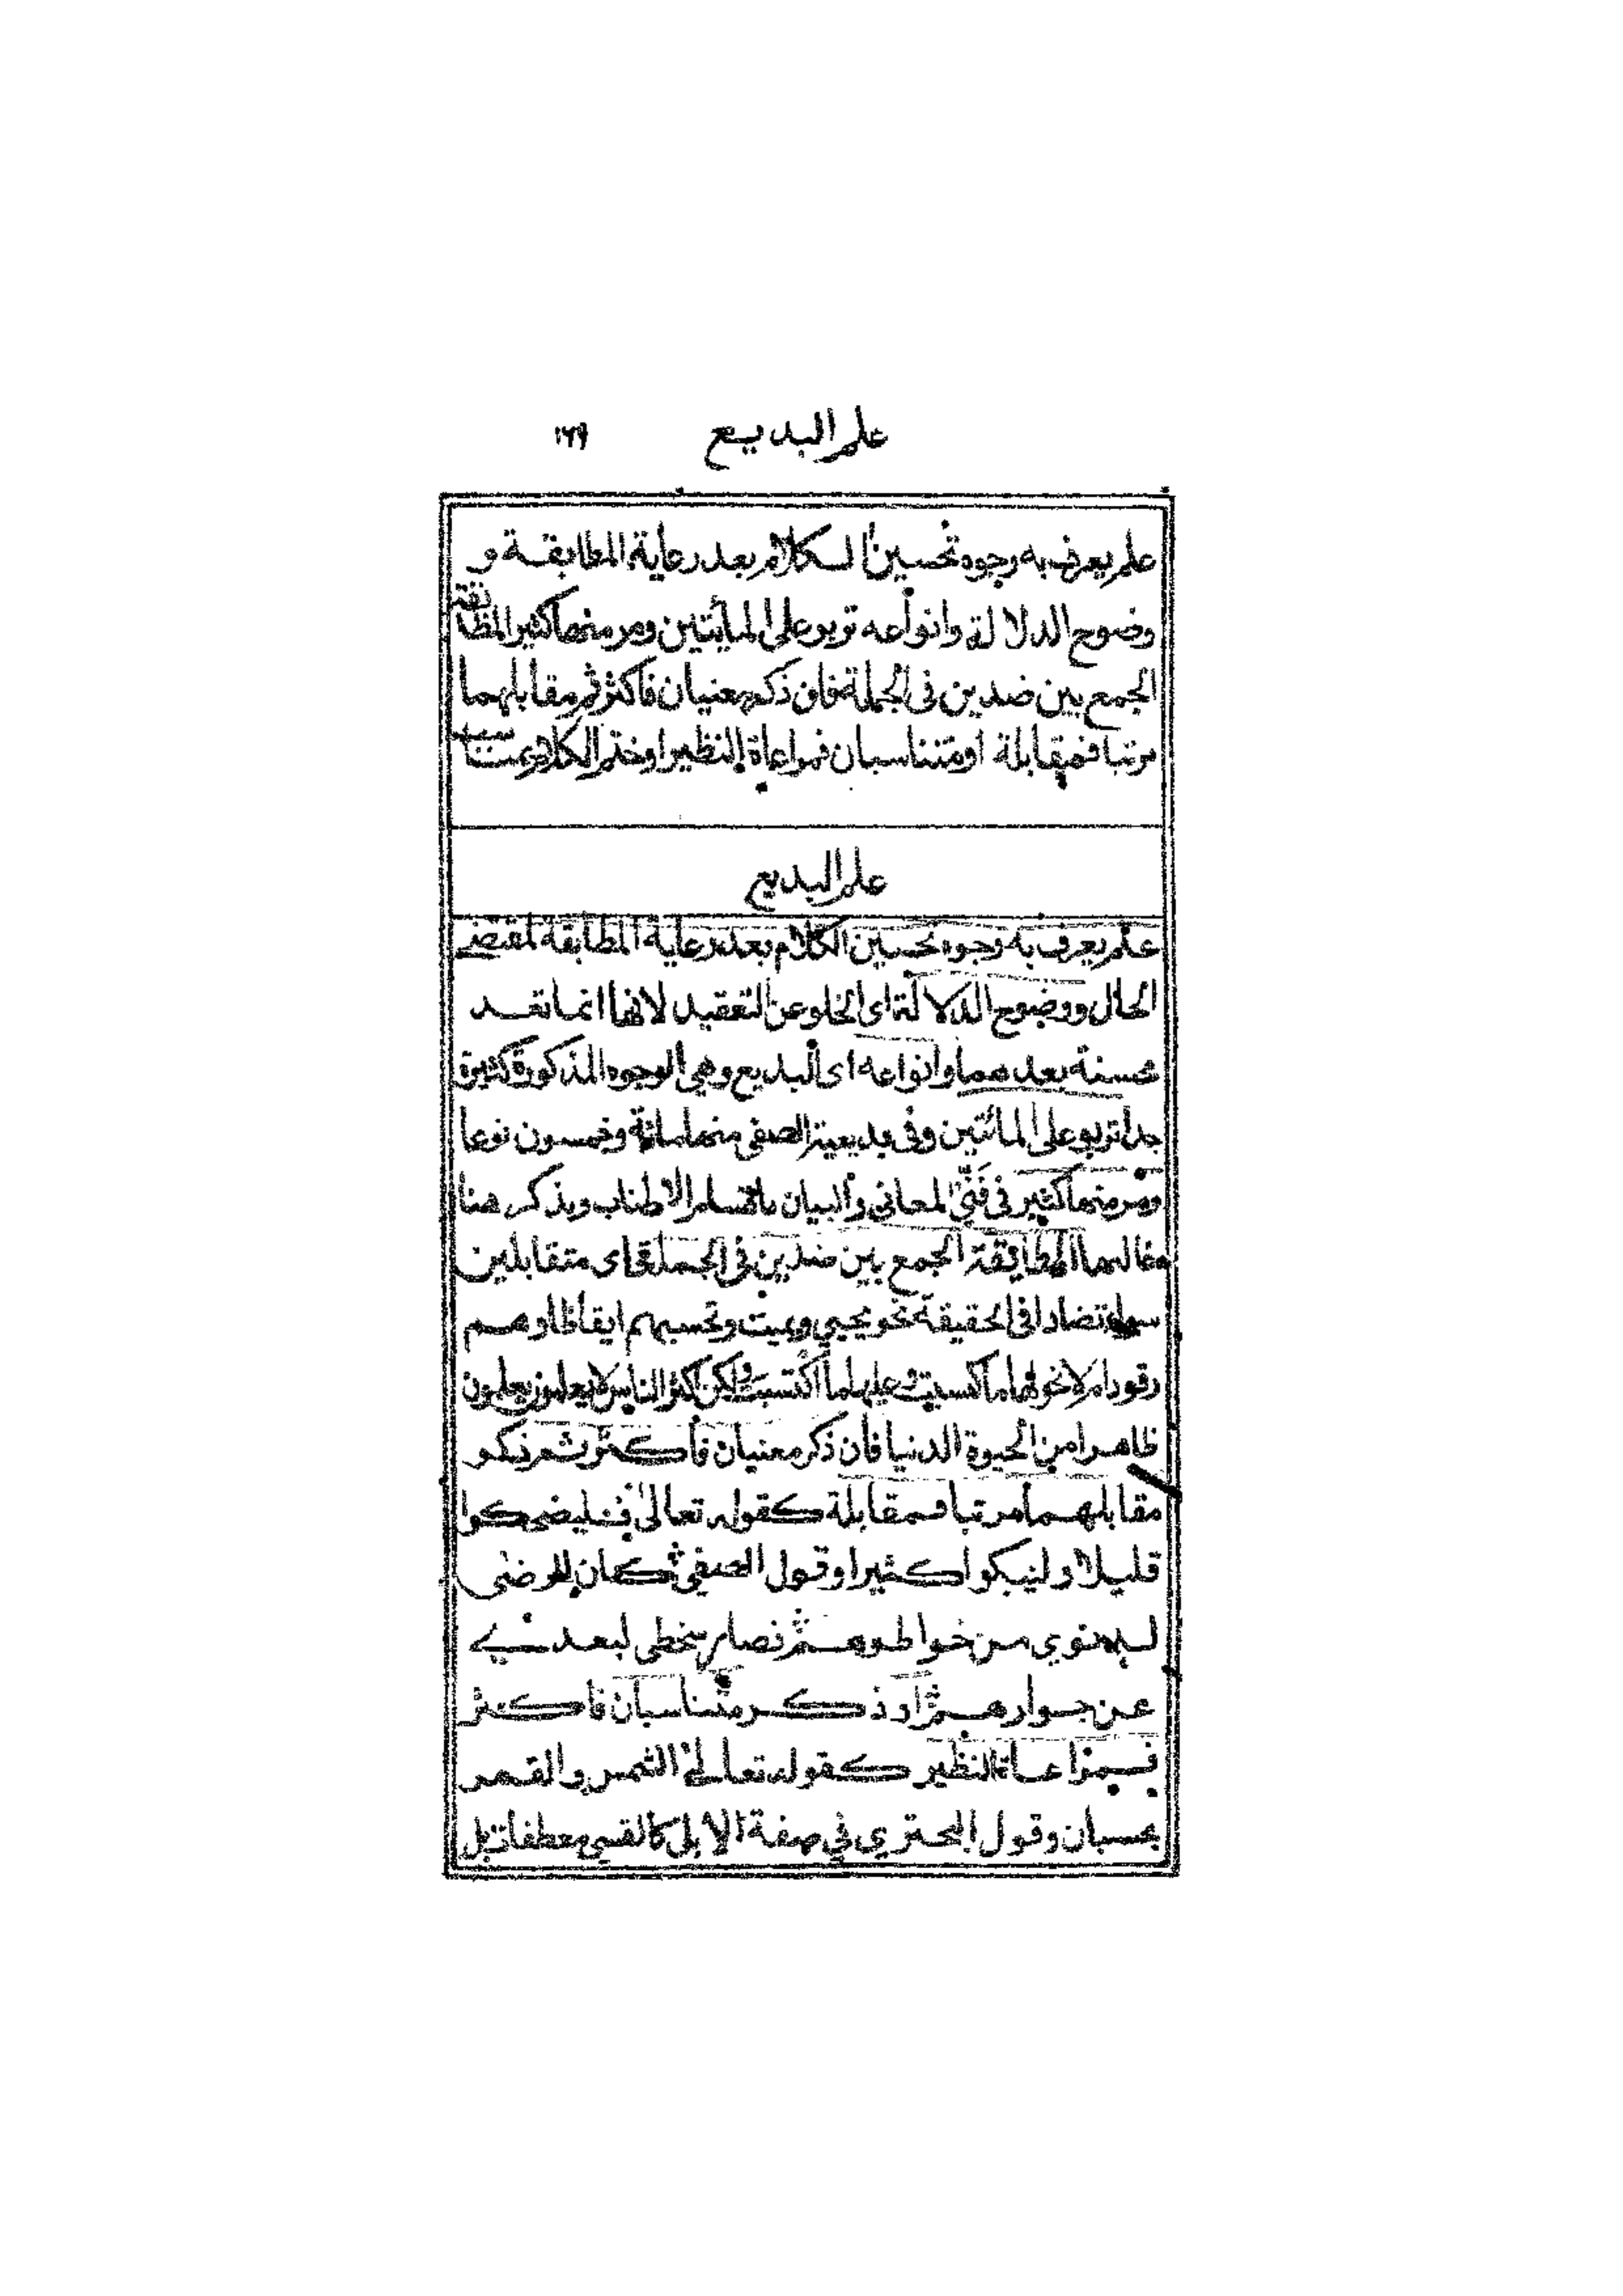 علم البديع ١٦٩
علم يعرف به وجوه تحسين الكلام بعد رعاية المطابقة و
وضوح الدلالة وانواعه تربو على المأيتين ومر منها كثير المطابقة
الجمع بين ضدين فى الجملة فان ذكر معنيان فاكثر ثم مقابلهما
مرتبا فمقابلة اومتناسبان فمراعاة النظير اوختم الكلام بمناسب
علم البديع
علم يعرف به وجوه تحسين الكلام بعد رعاية المطابقة لمقتضى
الحال ووضوح الدلالة اى الخلو عن التعقيد لانها انما تعد
محسنة بعدهما وانواعه اى البديع وهى الوجوه المذكورة كثيرة
جدا تربو على المائتين وفى بديعية الصفى منها مائة وخمسون نوعا
ومر منها كثير فى فَنَّىِ المعانى والبيان باقسام الاطناب ويذكر هنا
غالبها المطابقة الجمع بين ضدين فى الجملة اى متقابلين
سواء تضادا فى الحقيقة نحو يحيى ويميت وتحسبهم ايقاظا وهم
رقود ام لا نحو لها ما كسبت وعليها ما اكتسبت ولكن اكثر الناس لا يعلمون يعلمون
ظاهرا من الحيوة الدنيا فان ذكر معنيان فاكثر ثم ذكر
مقابلهما مرتبا فمقابلة كقوله تعالى فليضحكوا
قليلا وليبكوا كثيرا وقول الصفى كان الرضى
لدنوي من خواطرهم فصار سخطى لبعدے
عن جوارهم او ذكر متناسبان فاكثر
فمراعاة النظير كقوله تعالى الشمس والقمر
بحسبان وقول البحترى في صفة الابل كالقسى معطفات بل